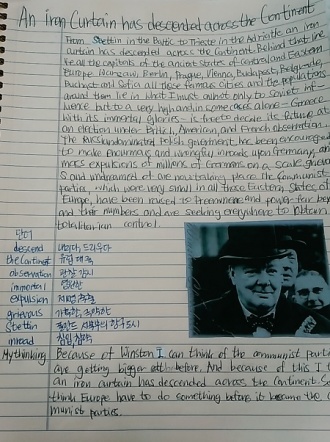 An iron Curtain has descended across the Continent
From Stettin in the Baltic to Trieste in the Adriatic an iron
curtain has descended across the Continent. Behind that line
lie all the capitals of the ancient states of central and Eastern
Europe. Warsaw, Berlin, Prague, Vienna, Budapest, Belgrade,
Bucharest and Sofia all these famous cities and the populations
around them lie in what I must not only to Soviet inf-
luence but to a very high and in some cases alone - Greece
with its immortal glories - is free to decide its future at
an election under British, American, and French observation.
The Russian dominated Polish government has been encouraged
to make enormous and wrongful inroads upon Germany, and
mass expulsions of millions of Germans on a scale grievous
and undreamed of are now taking place. The communist
parties, which were very small in all these Eastern States of
Europe, have been raised to preeminence and power far beyond
and their numbers and are seeking everywhere to obtain
totalitarian control.
단어
descend 내리다, 드리우다
the Continent 유럽 대륙
observation 관찰, 감시
immortal
expulsion
grievous
Stettin
inroad 침입, 침략
My thinking Because of Winston I can think of the communist part
are getting bigger before. And because of this I
an iron curtain has descended across the Continent. So
think Europe have to do something before it became the c
munist parties.